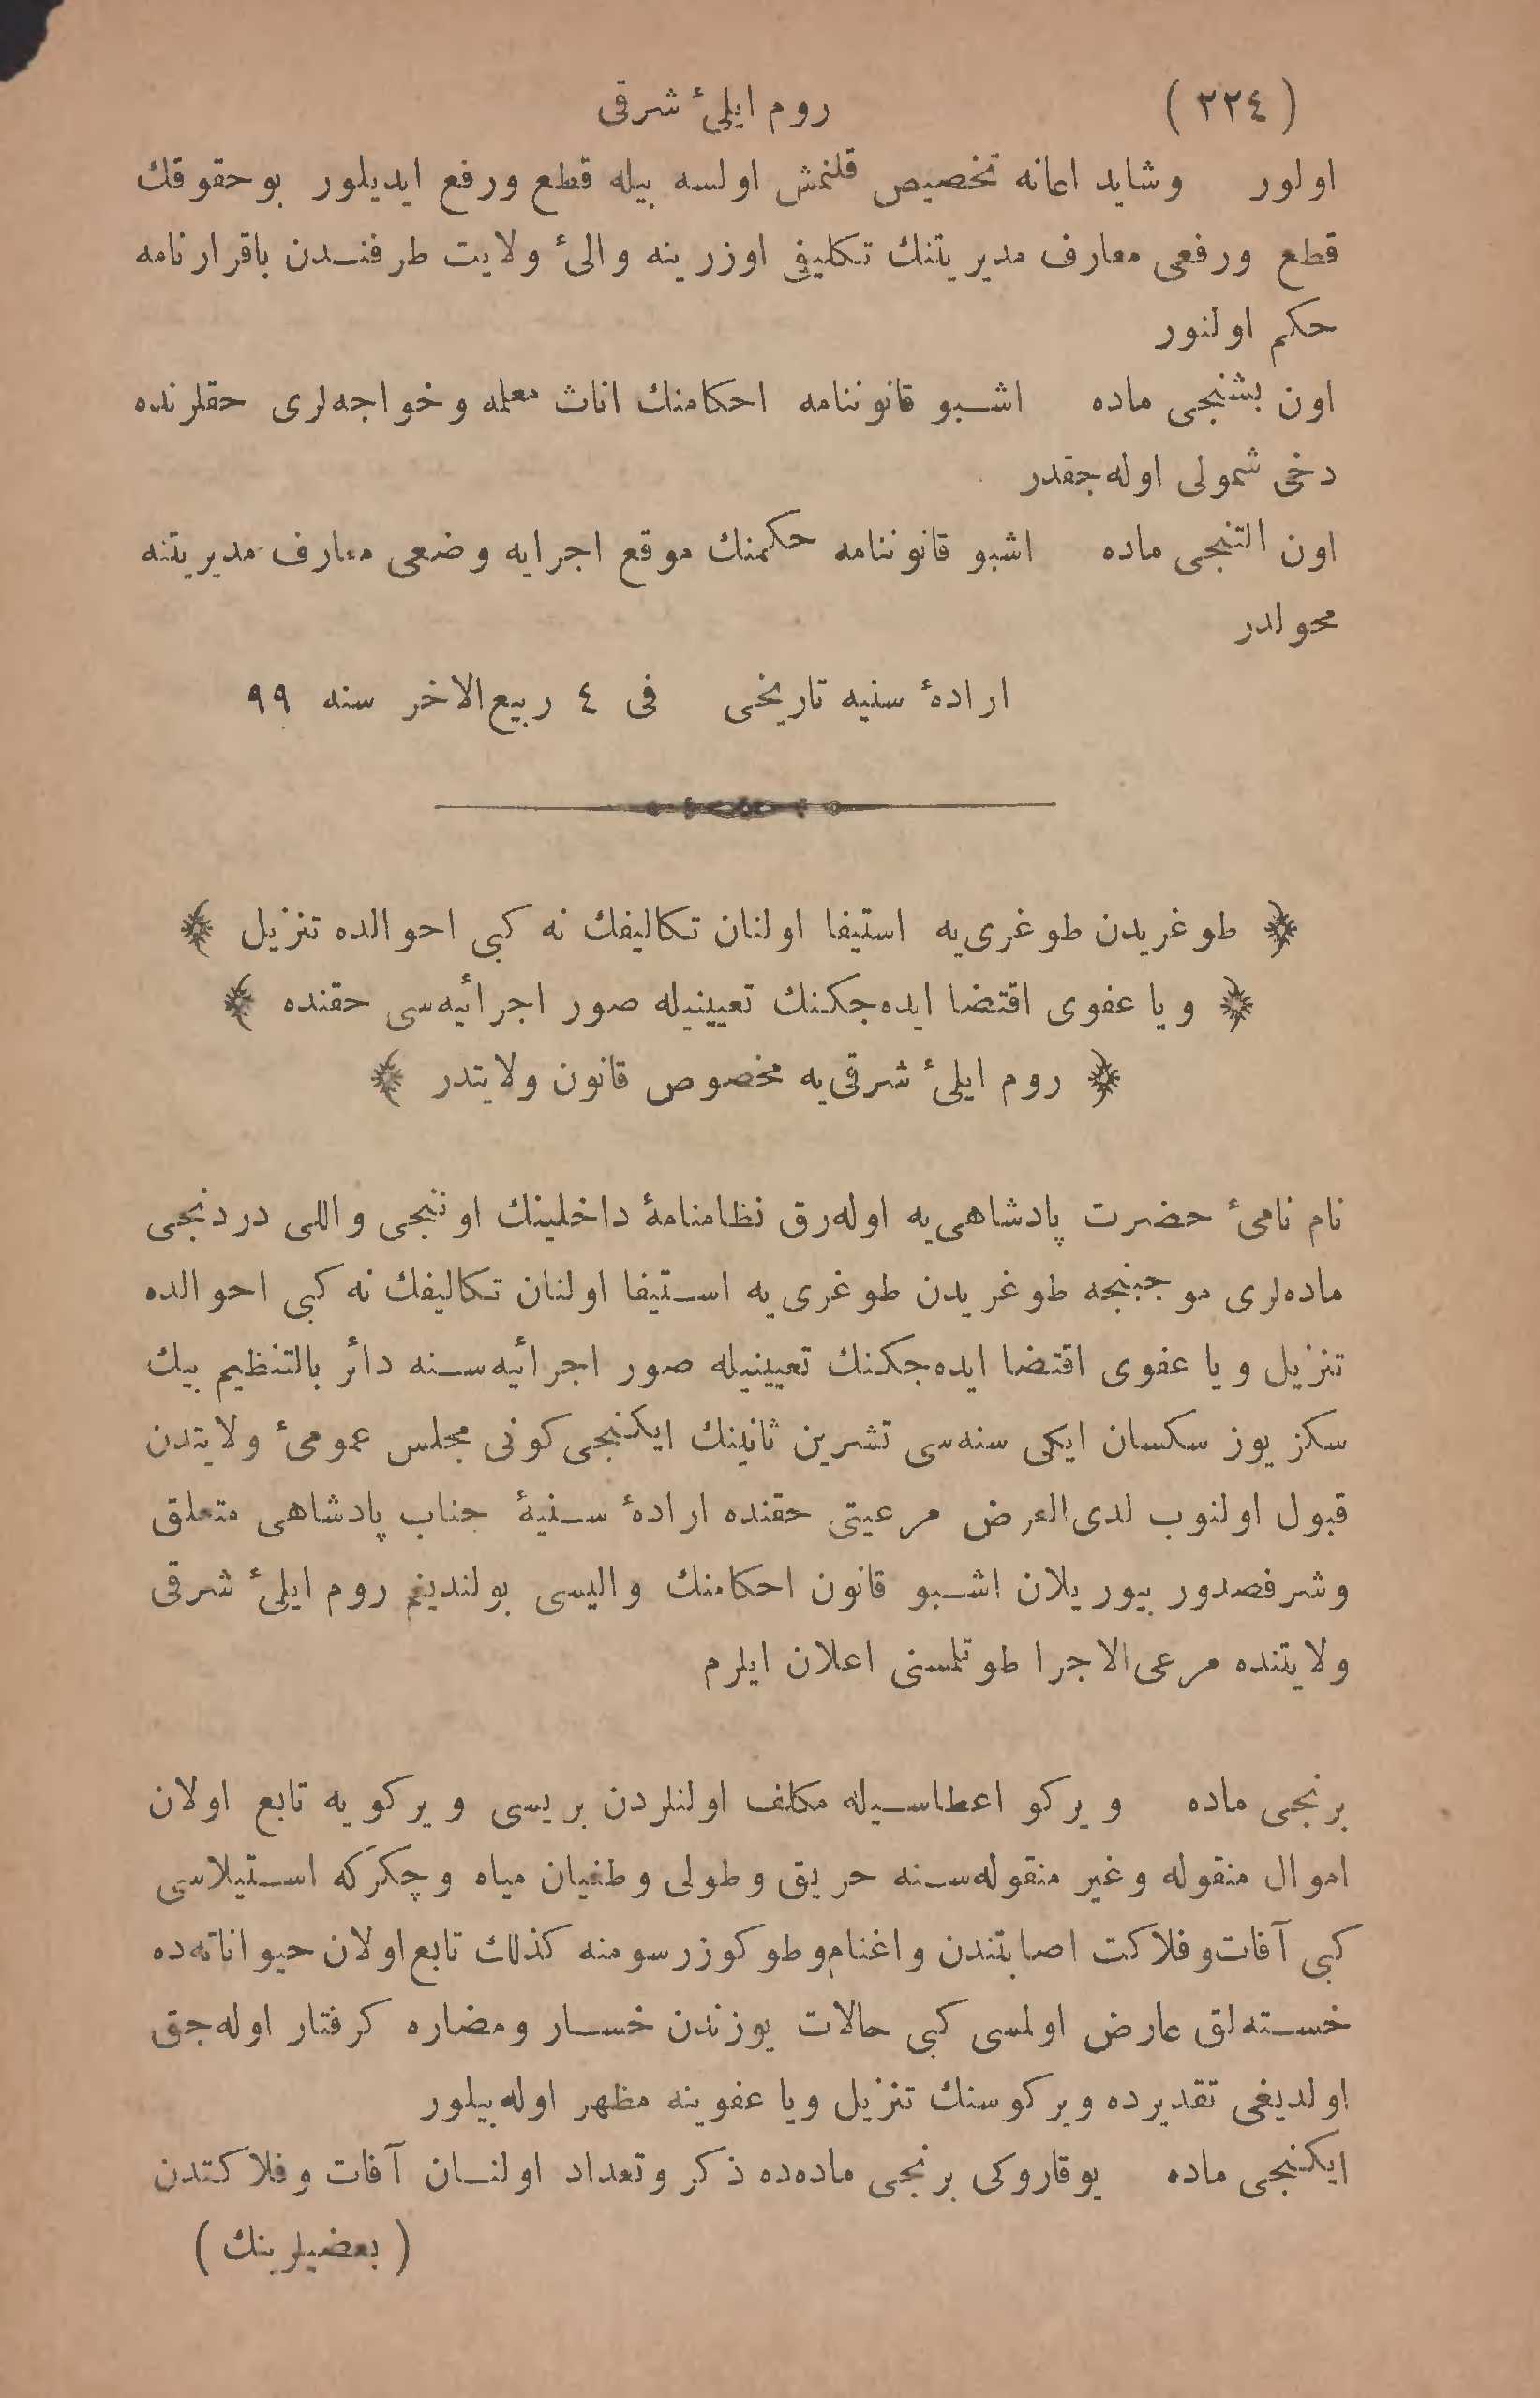 ( ٢٢٤ ) روم ايلئ شرقى
اولور وشايد اعانه تخصيص قلنمش اولسه بيله قطع ورفع ايديلور بوحقوقك
قطع ورفعى معارف مديريتنك تكليفى اوزرينه والئ ولايت طرفندن باقرارنامه
حكم اولنور
اون بشنجى ماده اشبو قانوننامه احكامنك اناث معلمه وخواجه‌لرى حقلرنده
دخى شمولى اوله‌جقدر
اون التنجى ماده اشبو قانوننامه حكمنك موقع اجرايه وضعى معارف مديريتنه
محولدر
ارادۀ سنيه تاريخى فى ٤ ربيع‌الاخر سنه ٩٩
﴿ طوغريدن طوغرى‌يه استيفا اولنان تكاليفك نه كبى احوالده تنزيل ﴾
﴿ ويا عفوى اقتضا ايده‌جكنك تعيينيله صور اجرائيه‌سى حقنده ﴾
﴿ روم ايلئ شرقى‌يه مخصوص قانون ولايتدر ﴾
نام نامئ حضرت پادشاهى‌يه اوله‌رق نظامنامۀ داخلينك اوننجى واللى دردنجى
ماده‌لرى موجبنجه طوغريدن طوغرى‌يه استيفا اولنان تكاليفك نه كبى احوالده
تنزيل ويا عفوى اقتضا ايده‌جكنك تعيينيله صور اجرائيه‌سنه دائر بالتنظيم بيك
سكز يوز سكسان ايكى سنه‌سى تشرين ثانينك ايكنجى كونى مجلس عمومئ ولايتدن
قبول اولنوب لدى‌العرض مرعيتى حقنده ارادۀ سنيۀ جناب پادشاهى متعلق
وشرفصدور بيوريلان اشبو قانون احكامنك واليسى بولنديغم روم ايلئ شرقى
ولايتنده مرعى‌الاجرا طوتلمسنى اعلان ايلرم
برنجى ماده ويركو اعطاسيله مكلف اولنلردن بريسى ويركويه تابع اولان
اموال منقوله وغير منقوله‌سنه حريق وطولى وطغيان مياه وچكركه استيلاسى
كبى آفات وفلاكت اصابتندن واغنام وطوكوز رسومنه كذلك تابع اولان حيواناته‌ده
خسته‌لق عارض اولمسى كبى حالات يوزندن خسار ومضاره كرفتار اوله‌جق
اولديغى تقديرده ويركوسنك تنزيل ويا عفوينه مظهر اوله‌بيلور
ايكنجى ماده يوقاروكى برنجى ماده‌ده ذكر وتعداد اولنان آفات وفلاكتدن
( بعضيلرينك )